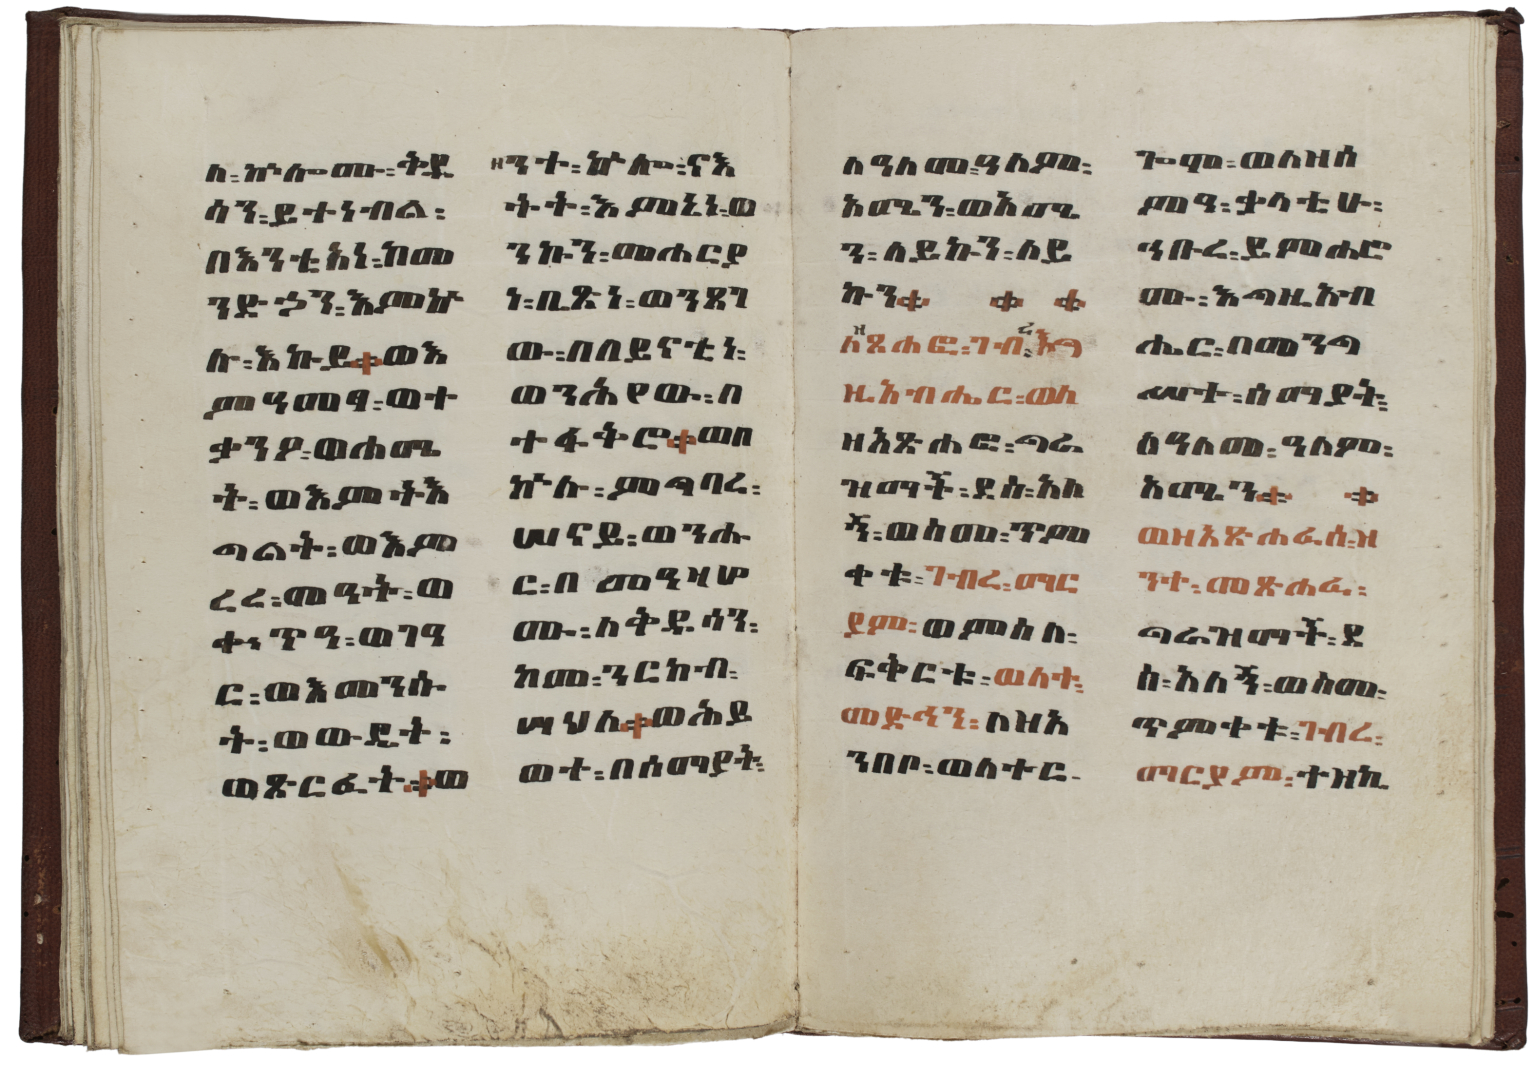 ለ፡ኵሎሙ፡ቅዱ
ሳን፡ይተነብል፡
በእንቲአነ፡ከመ
ንድኃን፡እምኵ
ሉ፡እኩይ።ወእ
ምዓመፃ፡ወተ
ቃንዖ፡ወሐሜ
ት፡ወእምትእ
ግልት፡ወእም
ረረ፡መዓት፡ወ
ቍጥዓ፡ወገዓ
ር፡ወእመንሱ
ት፡ወውዴት፡
ወጽርፈት።ወ
ዘንተ፡ኵሎ፡ናእ
ትት፡እምኔነ፡ወ
ንኩን፡መሐርያ
ነ፡ቢጽነ፡ወንጸገ
ው፡በበይናቲነ፡
ወንሕየው፡በ
ተፋቅሮ።ወበ
ኵሉ፡ምግባረ፡
ሠናይ፡ወንሑ
ር፡በ መዓዛሆ
ሙ፡ለቅዱሳን፡
ከመ፡ንርከብ፡
ሣህለ።ወሕይ
ወተ፡በሰማያት፡
ለዓለመ፡ዓለም፡
አሜን፡ወአሜ
ን፡ለይኩን፡ለይ
ኩን። ። ።
ለዘጸሐፎ፡ገብረ፡እግ
ዚአብሔር፡ወለ
ዘአጽሐፎ፡ግራ
ዝማች፡ደሱ፡አለ
ኝ፡ወስመ፡ጥም
ቀቱ፡ገብረ፡ማር
ያም፡ወምስለ፡
ፍቅርቱ፡ወለተ፡
መድኅን፡ለዝአ
ንበቦ፡ወለተር
ጐሞ፡ወለዘሰ
ምዓ፡ቃላቲሁ፡
ኅቡረ፡ይምሐሮ
ሙ፡እግዚአብ
ሔር፡በመንግ
ሥተ፡ሰማያት፡
ለዓለመ፡ዓለም፡
አሜን። ።
ወዘአጽሐፈ፡ዛ
ንተ፡መጽሐፈ፡
ግራዝማች፡ደ
ሱ፡አለኝ፡ወስመ፡
ጥምቀቱ፡ገብረ፡
ማርያም፡ተዝኪ